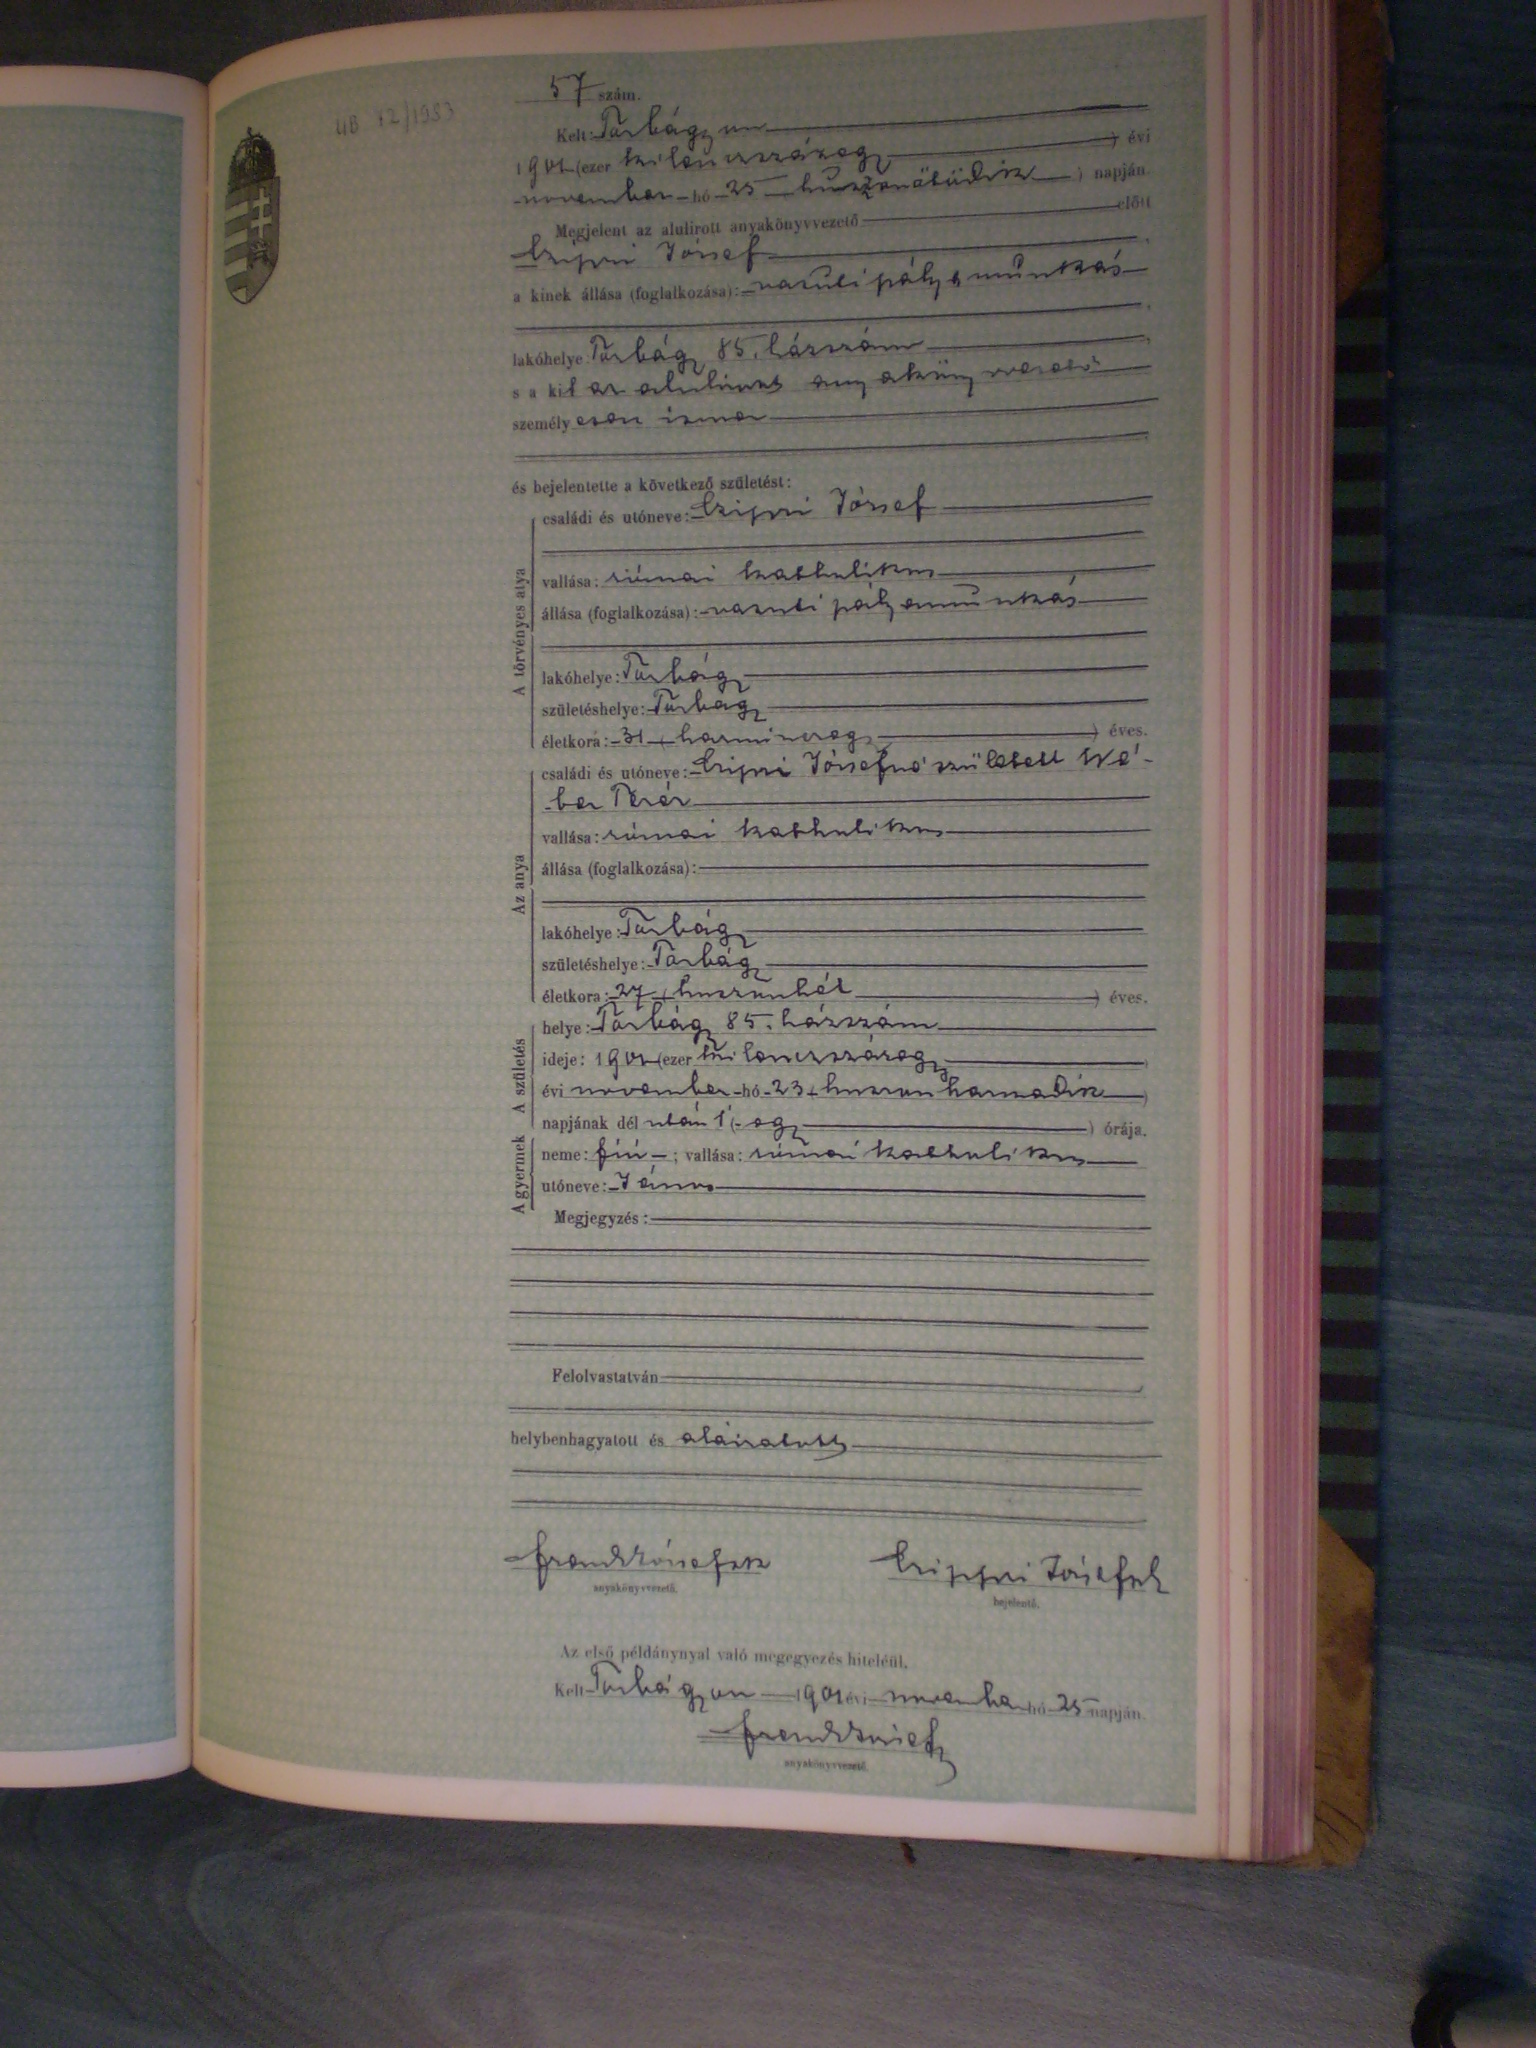 UB 12/1983
57 szám.
Kelt: Torbágyon
1901 (ezer kilenczszázegy) évi
november hó 25 (huszonötödik) napján.
Megjelent az alulirott anyakönyvvezető előtt
Czipri József
a kinek állása (foglalkozása): vasuti pályamunkás
lakóhelye Torbágy 85. házszám
s a kit az alulirott anyakönyvvezető
személyesen ismer
és bejelentette a következő születést:
A törvényes atya
családi és utóneve: Czipri József
vallása: római katholikus
állása (foglalkozása): vasuti pályamunkás
lakóhelye: Torbágy
születéshelye: Torbágy
életkora: 31 (harminczegy) éves.
Az anya
családi és utóneve: Czipri Józsefné született Wé-
ber Teréz
vallása: római katholikus
állása (foglalkozása):
lakóhelye: Torbágy
születéshelye: Torbágy
életkora: 27 (huszonhét) éves.
A születés
helye: Torbágy 85. házszám
ideje: 1901 (ezer kilenczszázegy)
évi november hó 23 (huszonharmadik)
napjának dél után 1 (egy) órája.
A gyermek
neme: fiú; vallása: római katholikus
utóneve: János
Megjegyzés:
Felolvastatván
helybenhagyatott és aláiratott
anyakönyvvezető.
Czippri József
bejelentő.
Az első példánynyal való megegyezés hiteléül.
Kelt Torbágyon 1901 évi november hó 25 napján.
anyakönyvvezető.